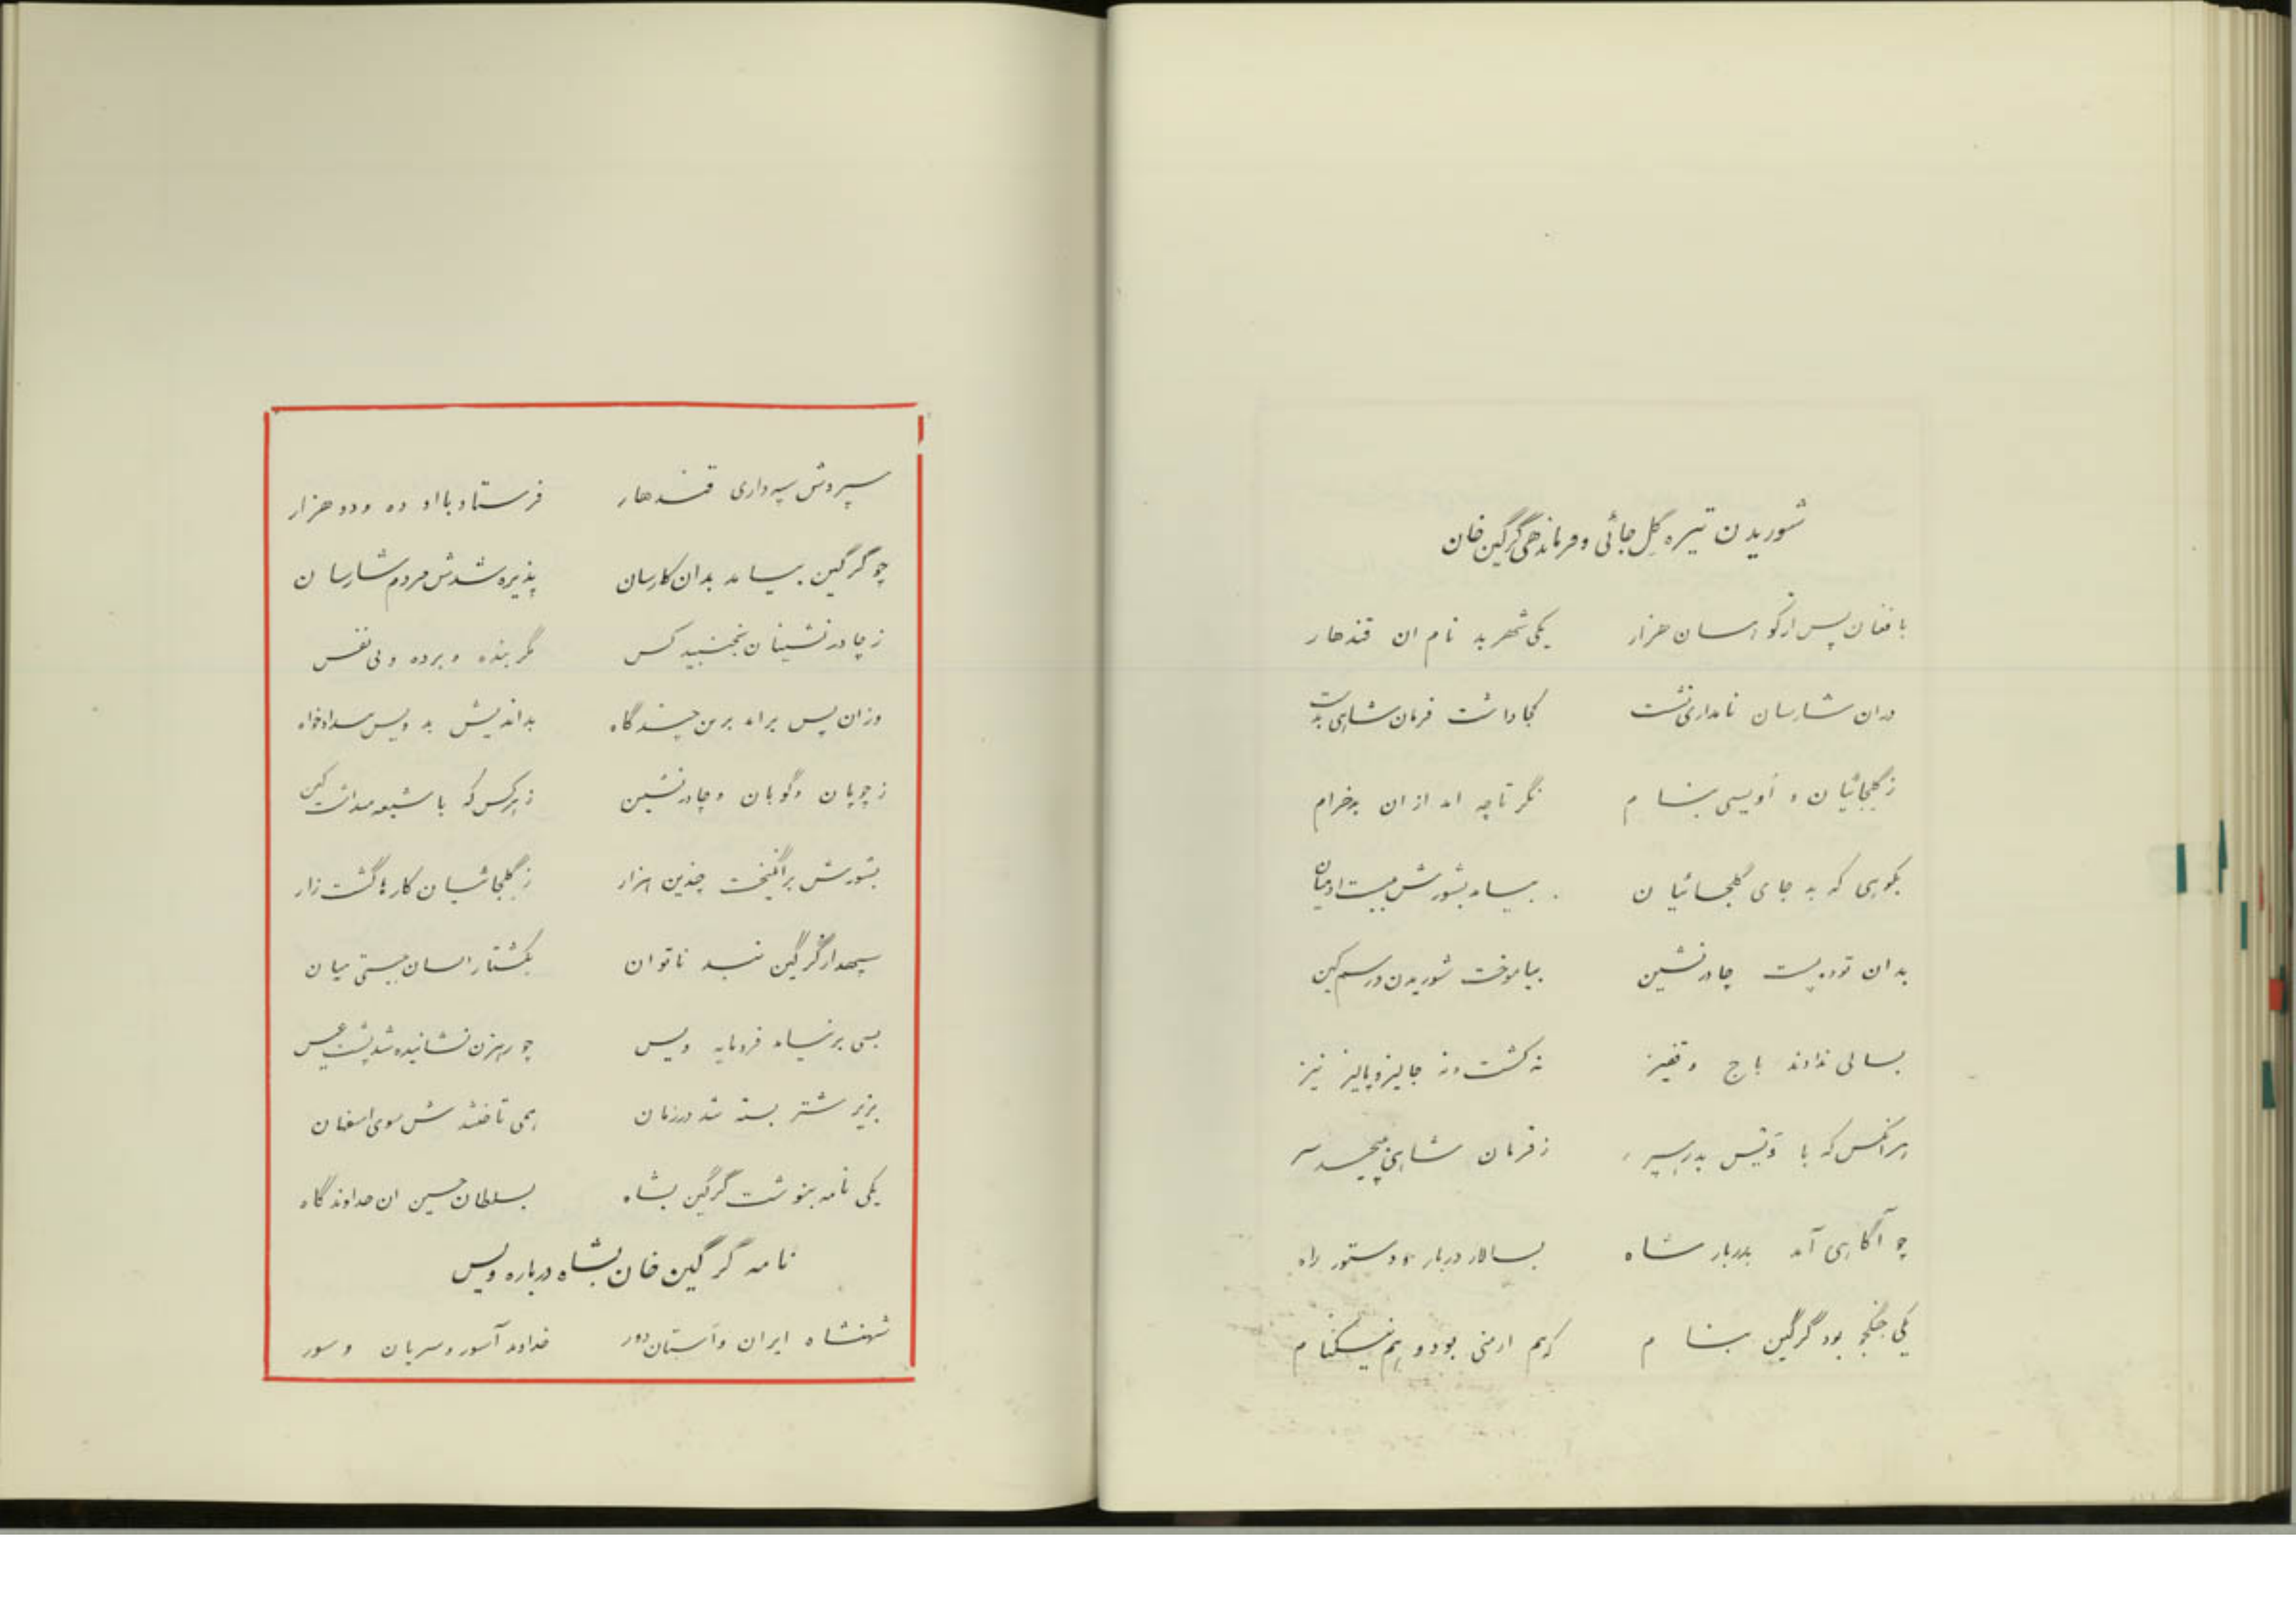 شوریدن تیره گل جائی و فرماندهی گرگین خان
بافغان پس از کوهسان هزار یکی شهر بد نام ان قندهار
دران شارسان نامداری نشست کجا داشت فرمان شاهی بدست
ز گلجائیان و اویسی بنام نگر تا چه امد از ان بدخرام
بکوهی که بد جای گلجائیان بیامد بشورش ببست او میان
بدان توده پست چادرنشین بیاموخت شوریدن و رسم کین
بسالی ندادند باج و قفیز نه کشت و نه جالیز و پالیز نیز
هرانکس که با وَیس بد رهسپر ز فرمان شاهی بپیچید سر
چو آگاهی آمد بدربار شاه بسالار دربار و دستور راه
یکی جنگجو بود گرگین بنام که هم ارمنی بود و هم نیکنام
سپردش سپهداری قندهار فرستاد با او ده و دو هزار
چو گرگین بیامد بدان کارسان پذیره شدش مردم شارسان
ز چادرنشینان نجنبید کس مگر بنده و برده و بی نفس
وزان پس برامد برین چندگاه بداندیش بد ویس
ز چوپان و گوبان و چادرنشین ز هرکس که با شیعه میداشت کین
بشورش برانگیخت چندین هزار ز گلجائیان کارها گشت زار
سپهدار گرگین نبد ناتوان بکشتار ایشان ببستی میان
بسی برنیامد فرومایه ویس چو رهزن نشانیده شد پشت عیس
بزیر شتر بسته شد در زمان همی تاختندش سوی اصفهان
یکی نامه بنوشت گرگین بشاه بسلطان حسین ان خداوند گاه
نامه گرگین خان بشاه درباره ویس
شهنشاه ایران و استان دور خداوند آسور و سریان و سور